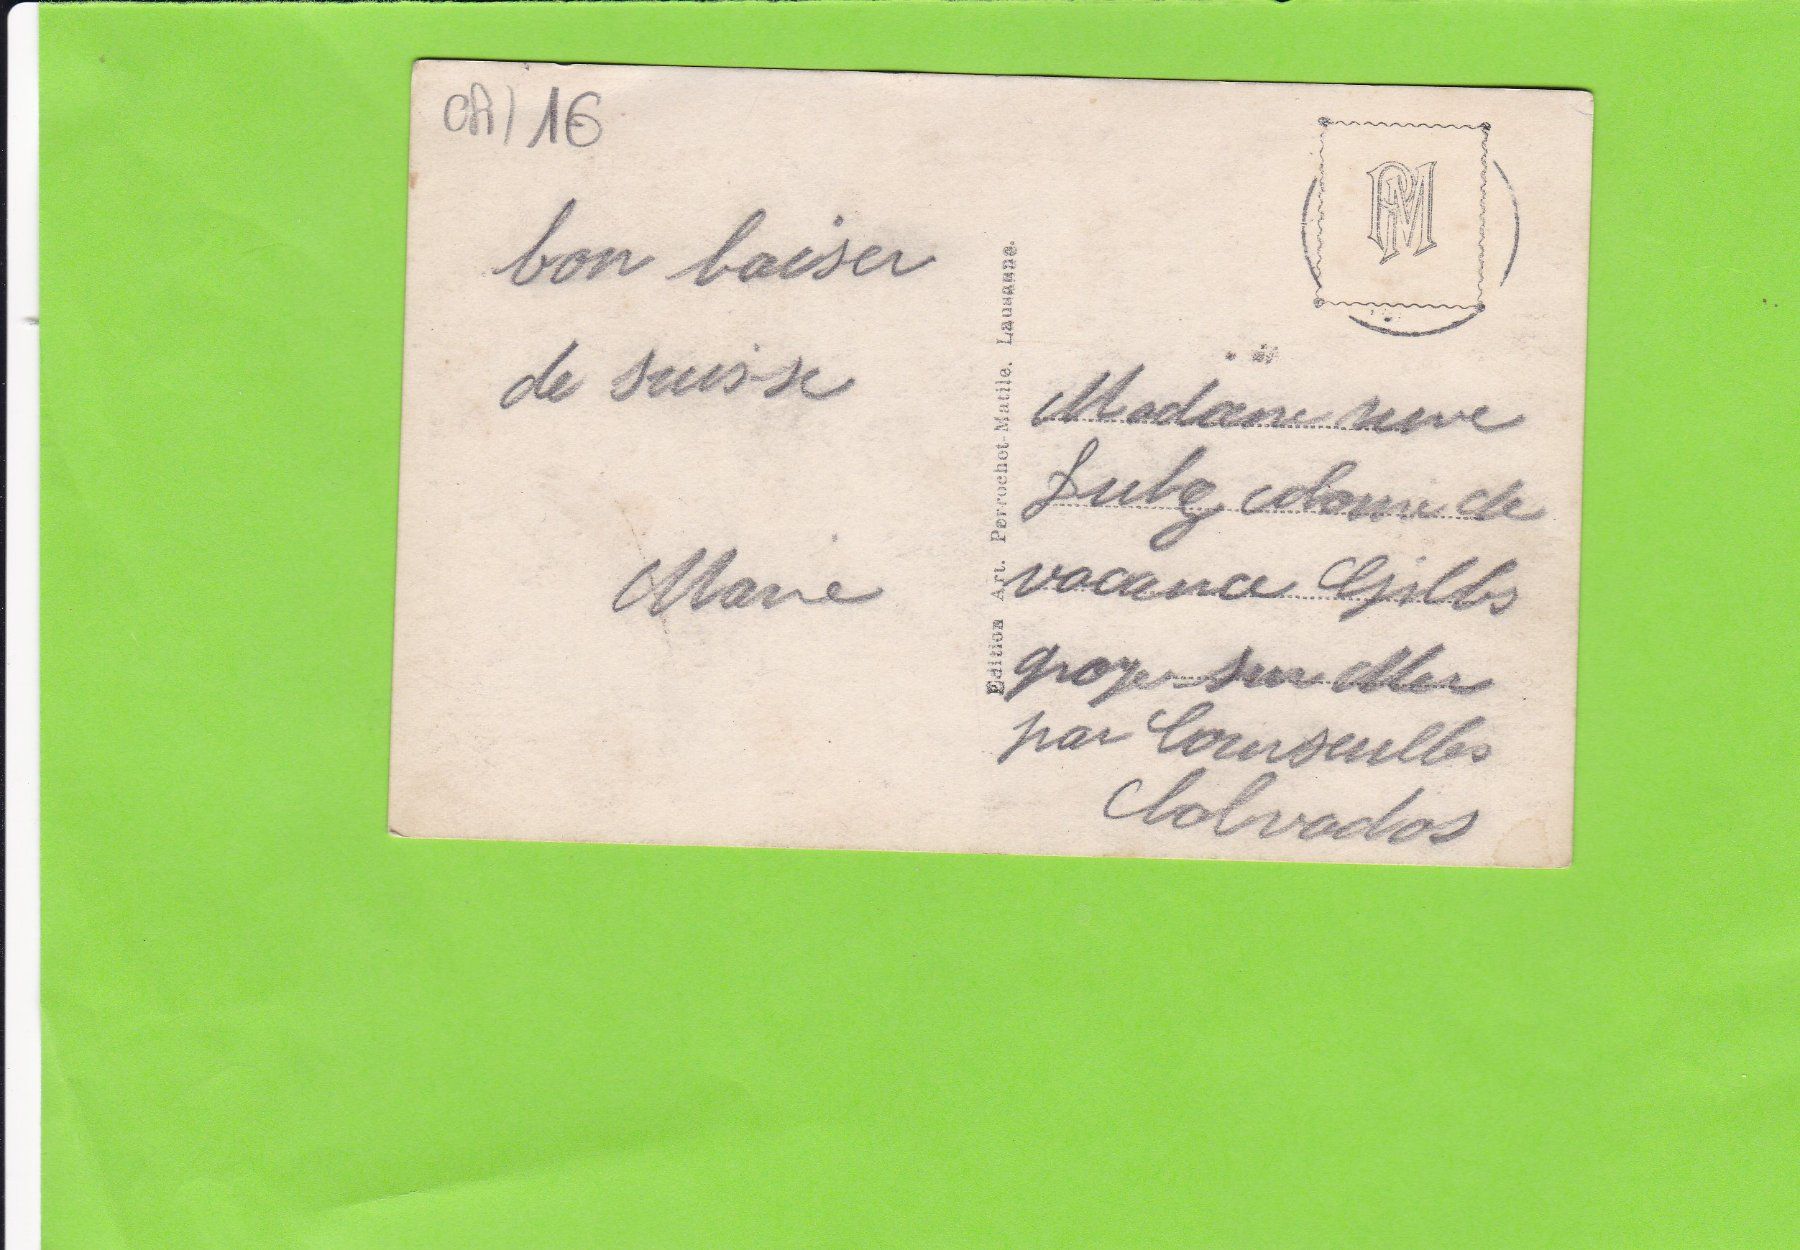 CA) 16
bon baiser
de suisse
Marie
Edition Art. Perrochet-Matile. Lausanne.
PM
Madame
colonie de
vacance Gilbs
sur Mer
par Courseulles
Calvados